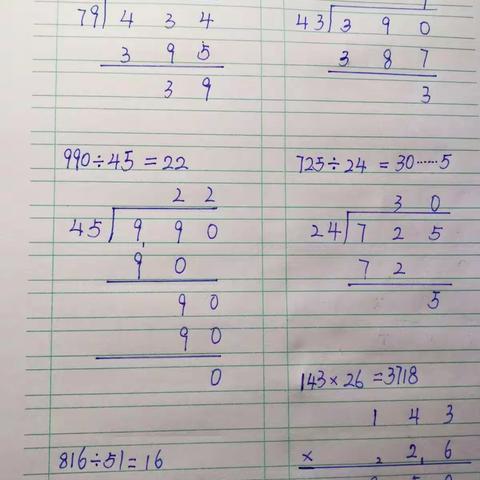 79 4 3 4
3 9 5
3 9
43 3 9 0
3 8 7
3
990÷45=22
2 2
45 9 9 0
9 0
9 0
9 0
0
725÷24=30……5
3 0
24 7 2 5
7 2
5
816÷51=16
143×26=3718
1 4 3
× 2 6